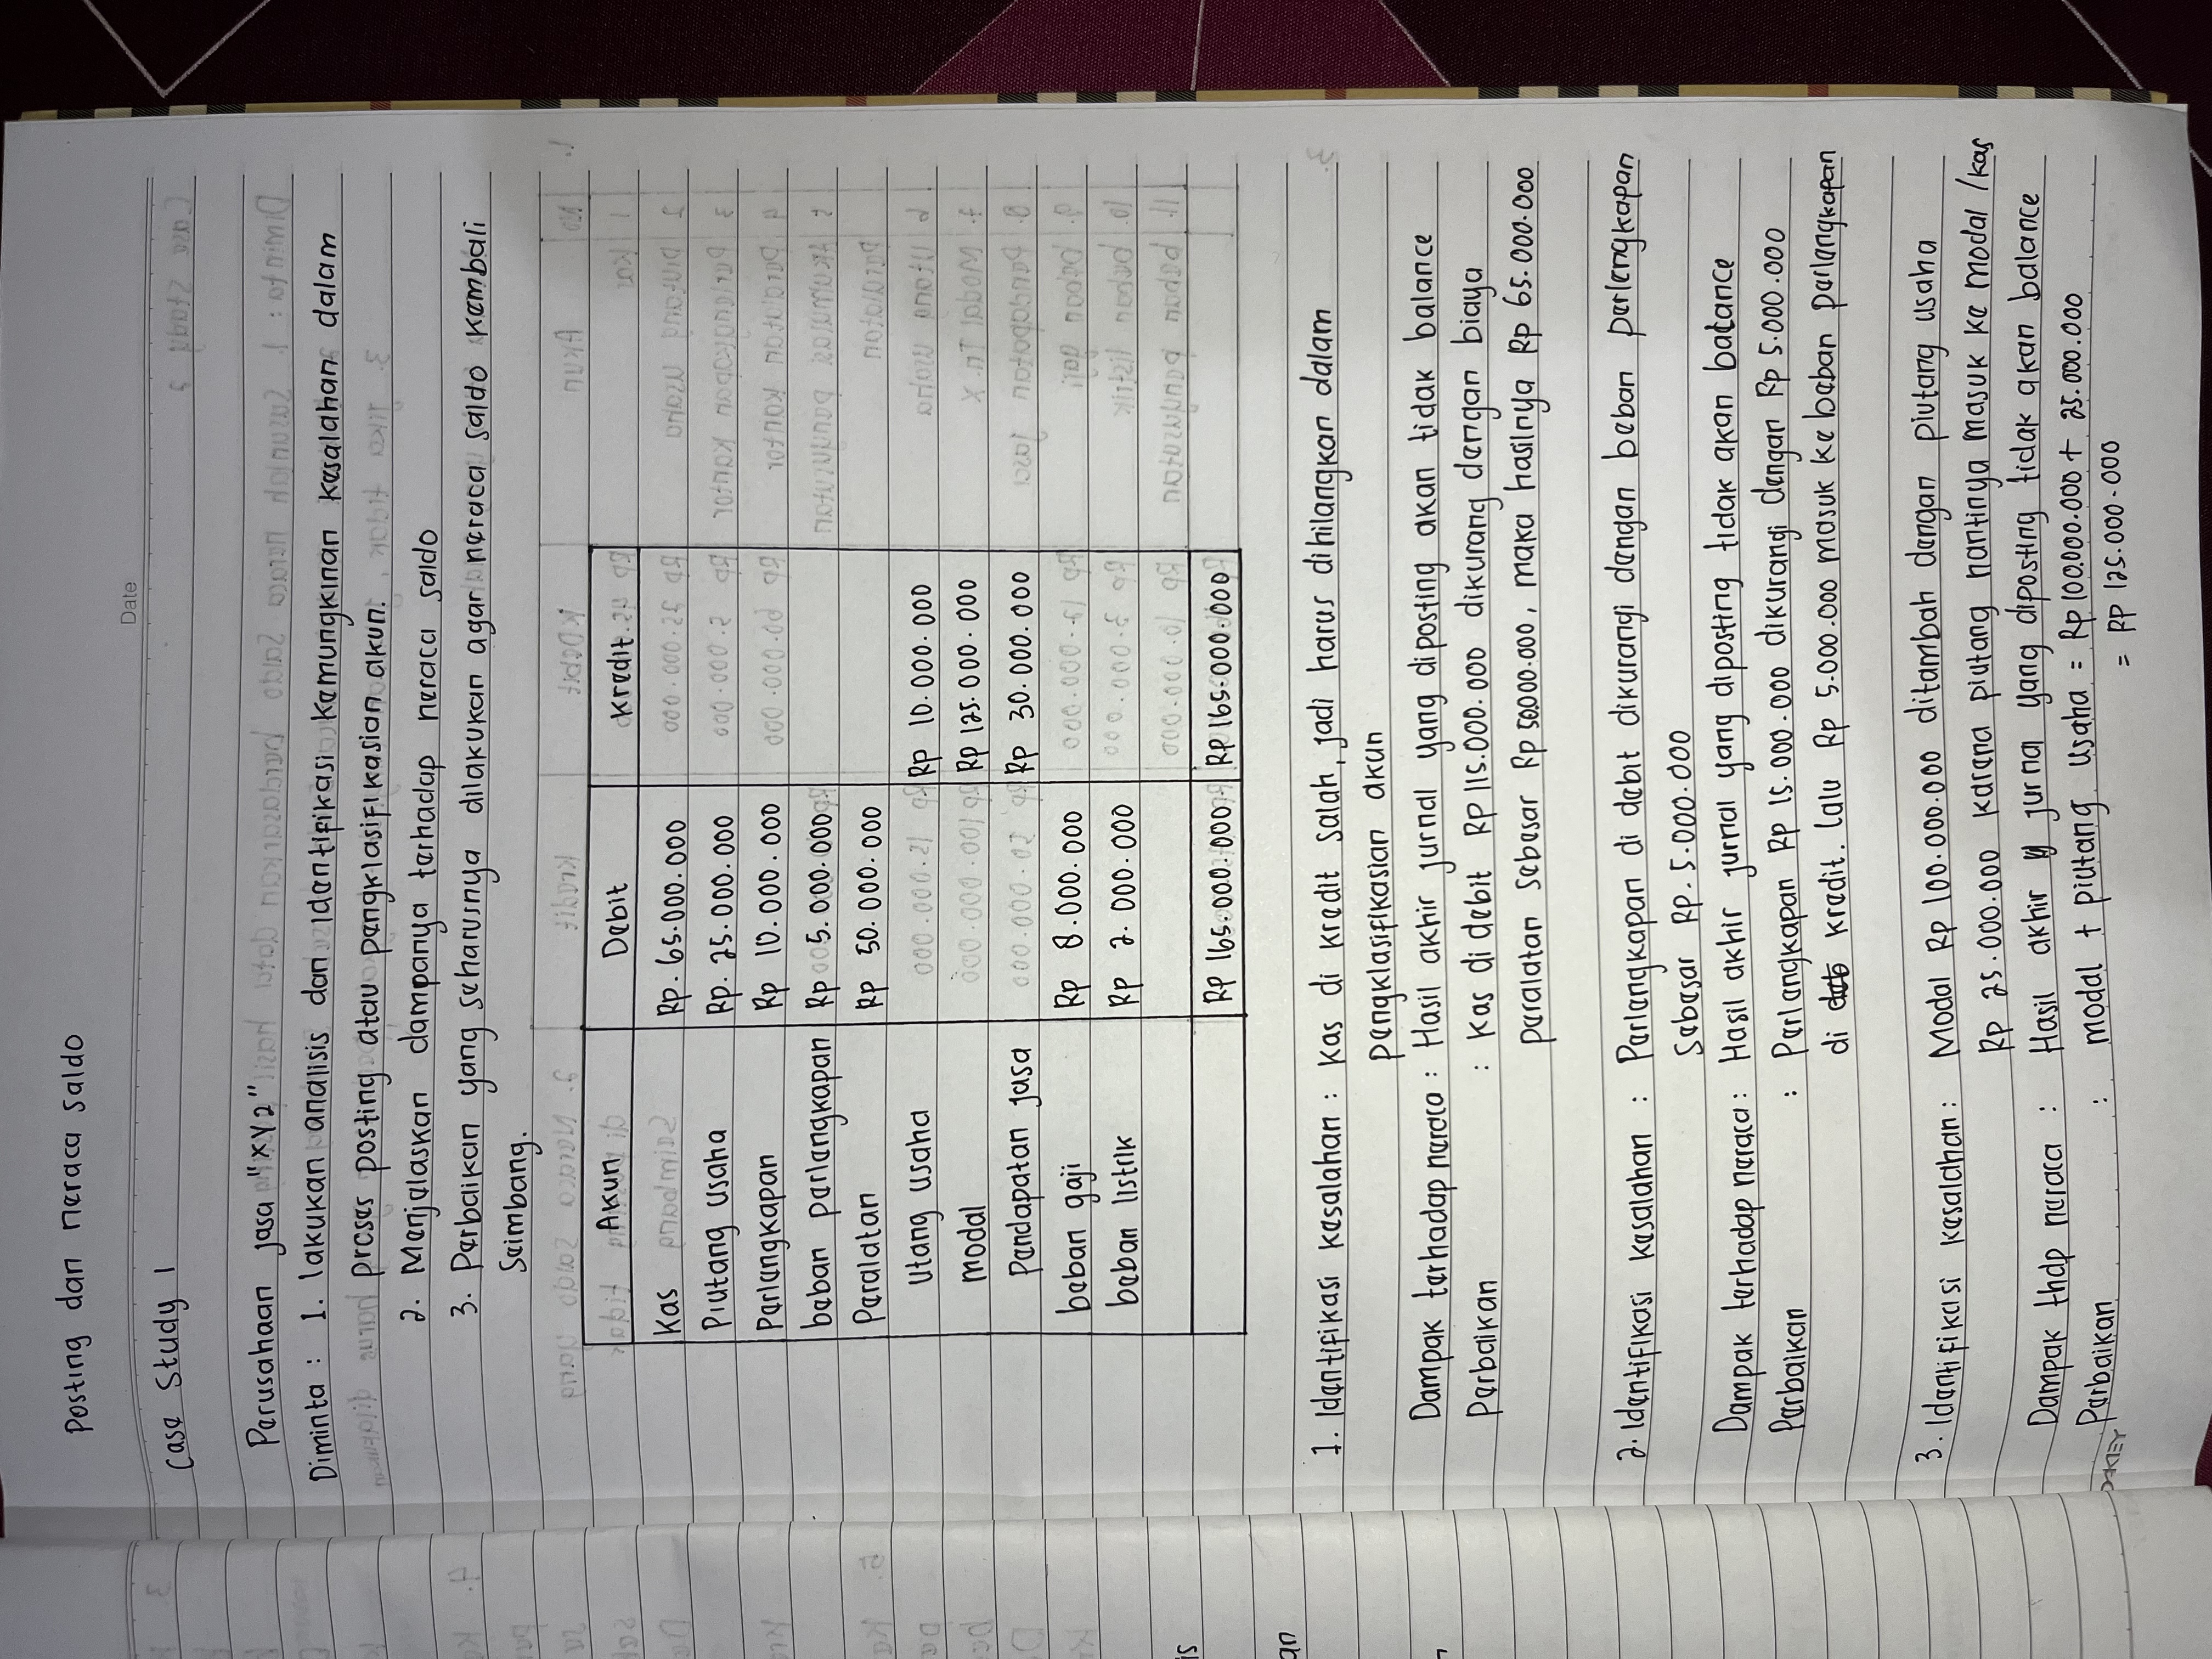 Posting dan neraca saldo
Date
Case Study 1
Perusahaan jasa "XYZ"
Diminta : 1. lakukan analisis dan identifikasi kemungkinan kesalahan dalam
proses posting atau pengklasifikasian akun.
2. Menjelaskan dampanya terhadap neraca saldo
3. Perbaikan yang seharusnya dilakukan agar neraca saldo kembali
Seimbang.
Akun Debit Kredit
Kas Rp. 65.000.000
Piutang usaha Rp. 25.000.000
Perlengkapan Rp 10.000.000
beban perlengkapan Rp 5.000.000
Peralatan Rp 50.000.000
Utang usaha Rp 10.000.000
modal Rp 125.000.000
Pendapatan jasa Rp 30.000.000
beban gaji Rp 8.000.000
beban listrik Rp 2.000.000
Rp 165.000.000 Rp 165.000.000
1. Identifikasi kesalahan : Kas di kredit salah, jadi harus dihilangkan dalam
pengklasifikasian akun
Dampak terhadap neraca : Hasil akhir jurnal yang diposting akan tidak balance
Perbaikan : Kas di debit Rp 115.000.000 dikurang dengan biaya
peralatan sebesar Rp 50.000.000, maka hasilnya Rp 65.000.000
2. Identifikasi kesalahan : Perlengkapan di debit dikurangi dengan beban perlengkapan
Sebesar RP. 5.000.000
Dampak terhadap neraca : Hasil akhir jurnal yang diposting tidak akan balance
Perbaikan : Perlengkapan Rp 15.000.000 dikurangi dengan Rp 5.000.000
di kredit. lalu Rp 5.000.000 masuk ke beban perlengkapan
3. Identifikasi kesalahan : Modal Rp 100.000.000 ditambah dengan piutang usaha
Rp 25.000.000 karena piutang nantinya masuk ke modal / kas
Dampak thdp neraca : Hasil akhir jurna yang diposting tidak akan balance
Perbaikan : modal + piutang usaha = Rp 100.000.000 + 25.000.000
= RP 125.000.000